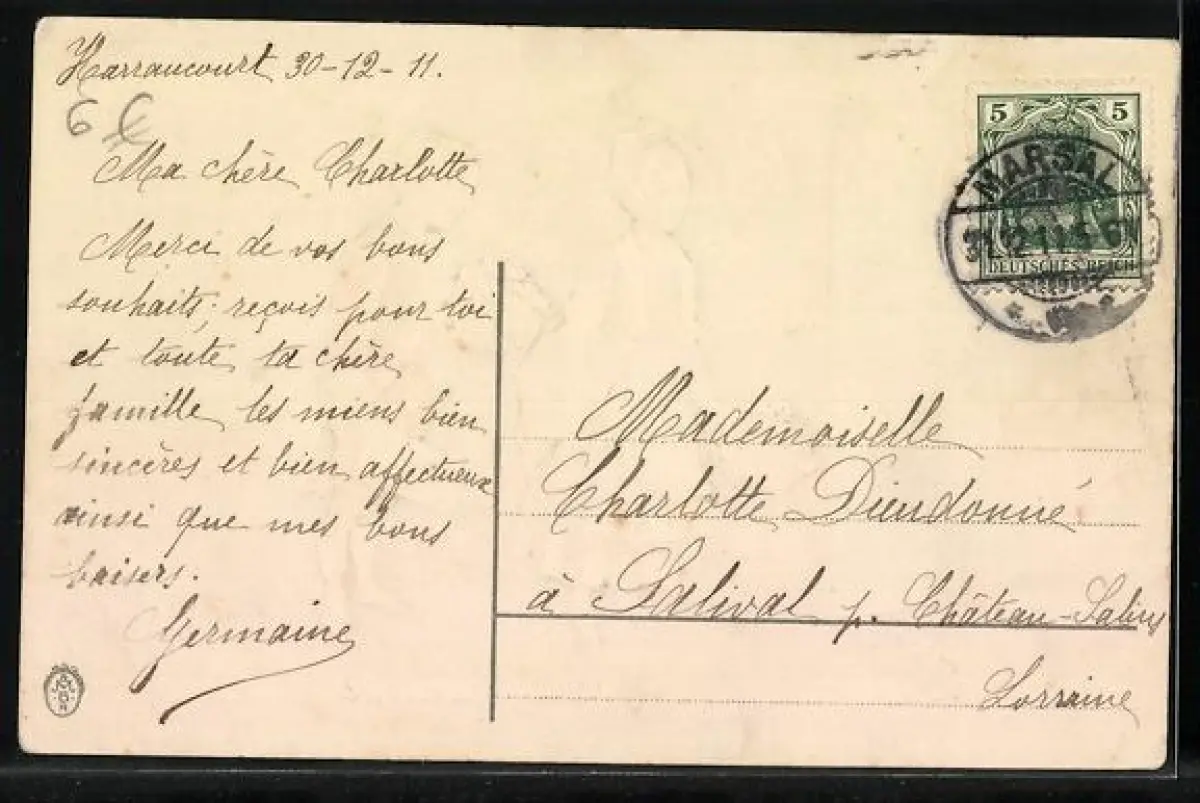 Harraucourt 30-12-11.
6 €
Ma chère Charlotte
Merci de vos bons
souhaits; reçois pour toi
et toute ta chère
famille les miens bien
sincères et bien affectueux
ainsi que mes bons
baisers.
Germaine
5 5
MARSAL
31.12.11.5-6N
DEUTSCHES REICH
Mademoiselle
Charlotte Dieudonné
à Salival p. Château-Salins
Lorraine